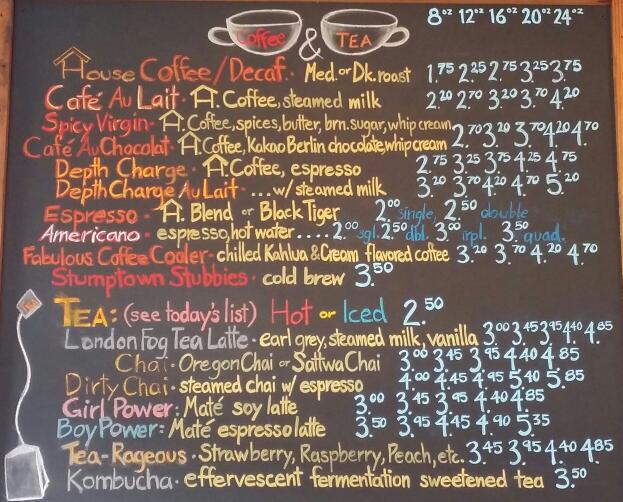 8oz 12oz 16oz 20oz 24oz
Coffee & TEA
House Coffee/Decaf · Med. or Dk. roast 1.75 2.25 2.75 3.25 3.75
Café Au Lait · H. Coffee, steamed milk 2.20 2.70 3.20 3.70 4.20
Spicy Virgin · H. Coffee, spices, butter, brn. sugar, whip cream 2.70 3.20 3.70 4.20 4.70
Café Au Chocolat · H. Coffee, Kakao Berlin chocolate, whip cream
Depth Charge · H. Coffee, espresso 2.75 3.25 3.75 4.25 4.75
Depth Charge Au Lait · ... w/ steamed milk 3.20 3.70 4.20 4.70 5.20
Espresso · H. Blend or Black Tiger 2.00 single, 2.50 double
Americano · espresso, hot water ..... 2.00 sgl. 2.50 dbl. 3.00 trpl. 3.50 quad.
Fabulous Coffee Cooler · chilled Kahlua & Cream flavored coffee 3.20 3.70 4.20 4.70
Stumptown Stubbies · cold brew 3.50
TEA: (see today's list) Hot or Iced 2.50
London Fog Tea Latte · earl grey, steamed milk, vanilla 3.00 3.45 3.95 4.40 4.85
Chai · Oregon Chai or Sattwa Chai 3.00 3.45 3.95 4.40 4.85
Dirty Chai · steamed chai w/ espresso 4.00 4.45 4.95 5.40 5.85
Girl Power: Maté soy latte 3.00 3.45 3.95 4.40 4.85
Boy Power: Maté espresso latte 3.50 3.95 4.45 4.90 5.35
Tea-Rageous · Strawberry, Raspberry, Peach, etc. 3.45 3.95 4.40 4.85
Kombucha · effervescent fermentation sweetened tea 3.50